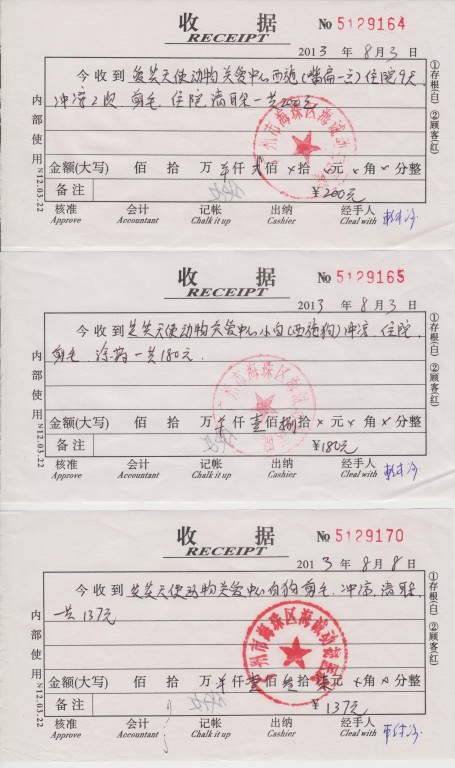 收 据 No 5129164
RECEIPT
2013 年 8 月 3 日
今 收 到 天使动物关爱中心西施(紫扁一三)住院9天
冲凉2次 剪毛、住院 清耳 一共200元
金额(大写) 佰 拾 万 仟 贰 佰 × 拾 × 元 × 角 × 分整
备 注 ￥200元
核准 会计 记帐 出纳 经手人
Approve Accountant Chalk it up Cashier Cleal with
内部使用 N12.03.22
①存根(白) ②顾客(红)
广州市海珠区海诚动
收 据 No 5129165
RECEIPT
2013 年 8 月 3 日
今 收 到 天使动物关爱中心小白(西施狗)冲凉、住院
剪毛、一共180元.
金额(大写) 佰 拾 万 仟 壹 佰 捌 拾 × 元 × 角 × 分整
备 注 ￥180元
核准 会计 记帐 出纳 经手人
Approve Accountant Chalk it up Cashier Cleal with
内部使用 N12.03.22
①存根(白) ②顾客(红)
广州市海珠区海诚动
收 据 No 5129170
RECEIPT
2013 年 8 月 8 日
今 收 到 天使动物关爱中心白狗 剪毛、冲凉、清耳、
一共 137元
金额(大写) 佰 拾 万 仟 壹 佰 叁 拾 柒 元 × 角 × 分整
备 注 ￥137元
核准 会计 记帐 出纳 经手人
Approve Accountant Chalk it up Cashier Cleal with
内部使用 N12.03.22
①存根(白) ②顾客(红)
广州市海珠区海诚动